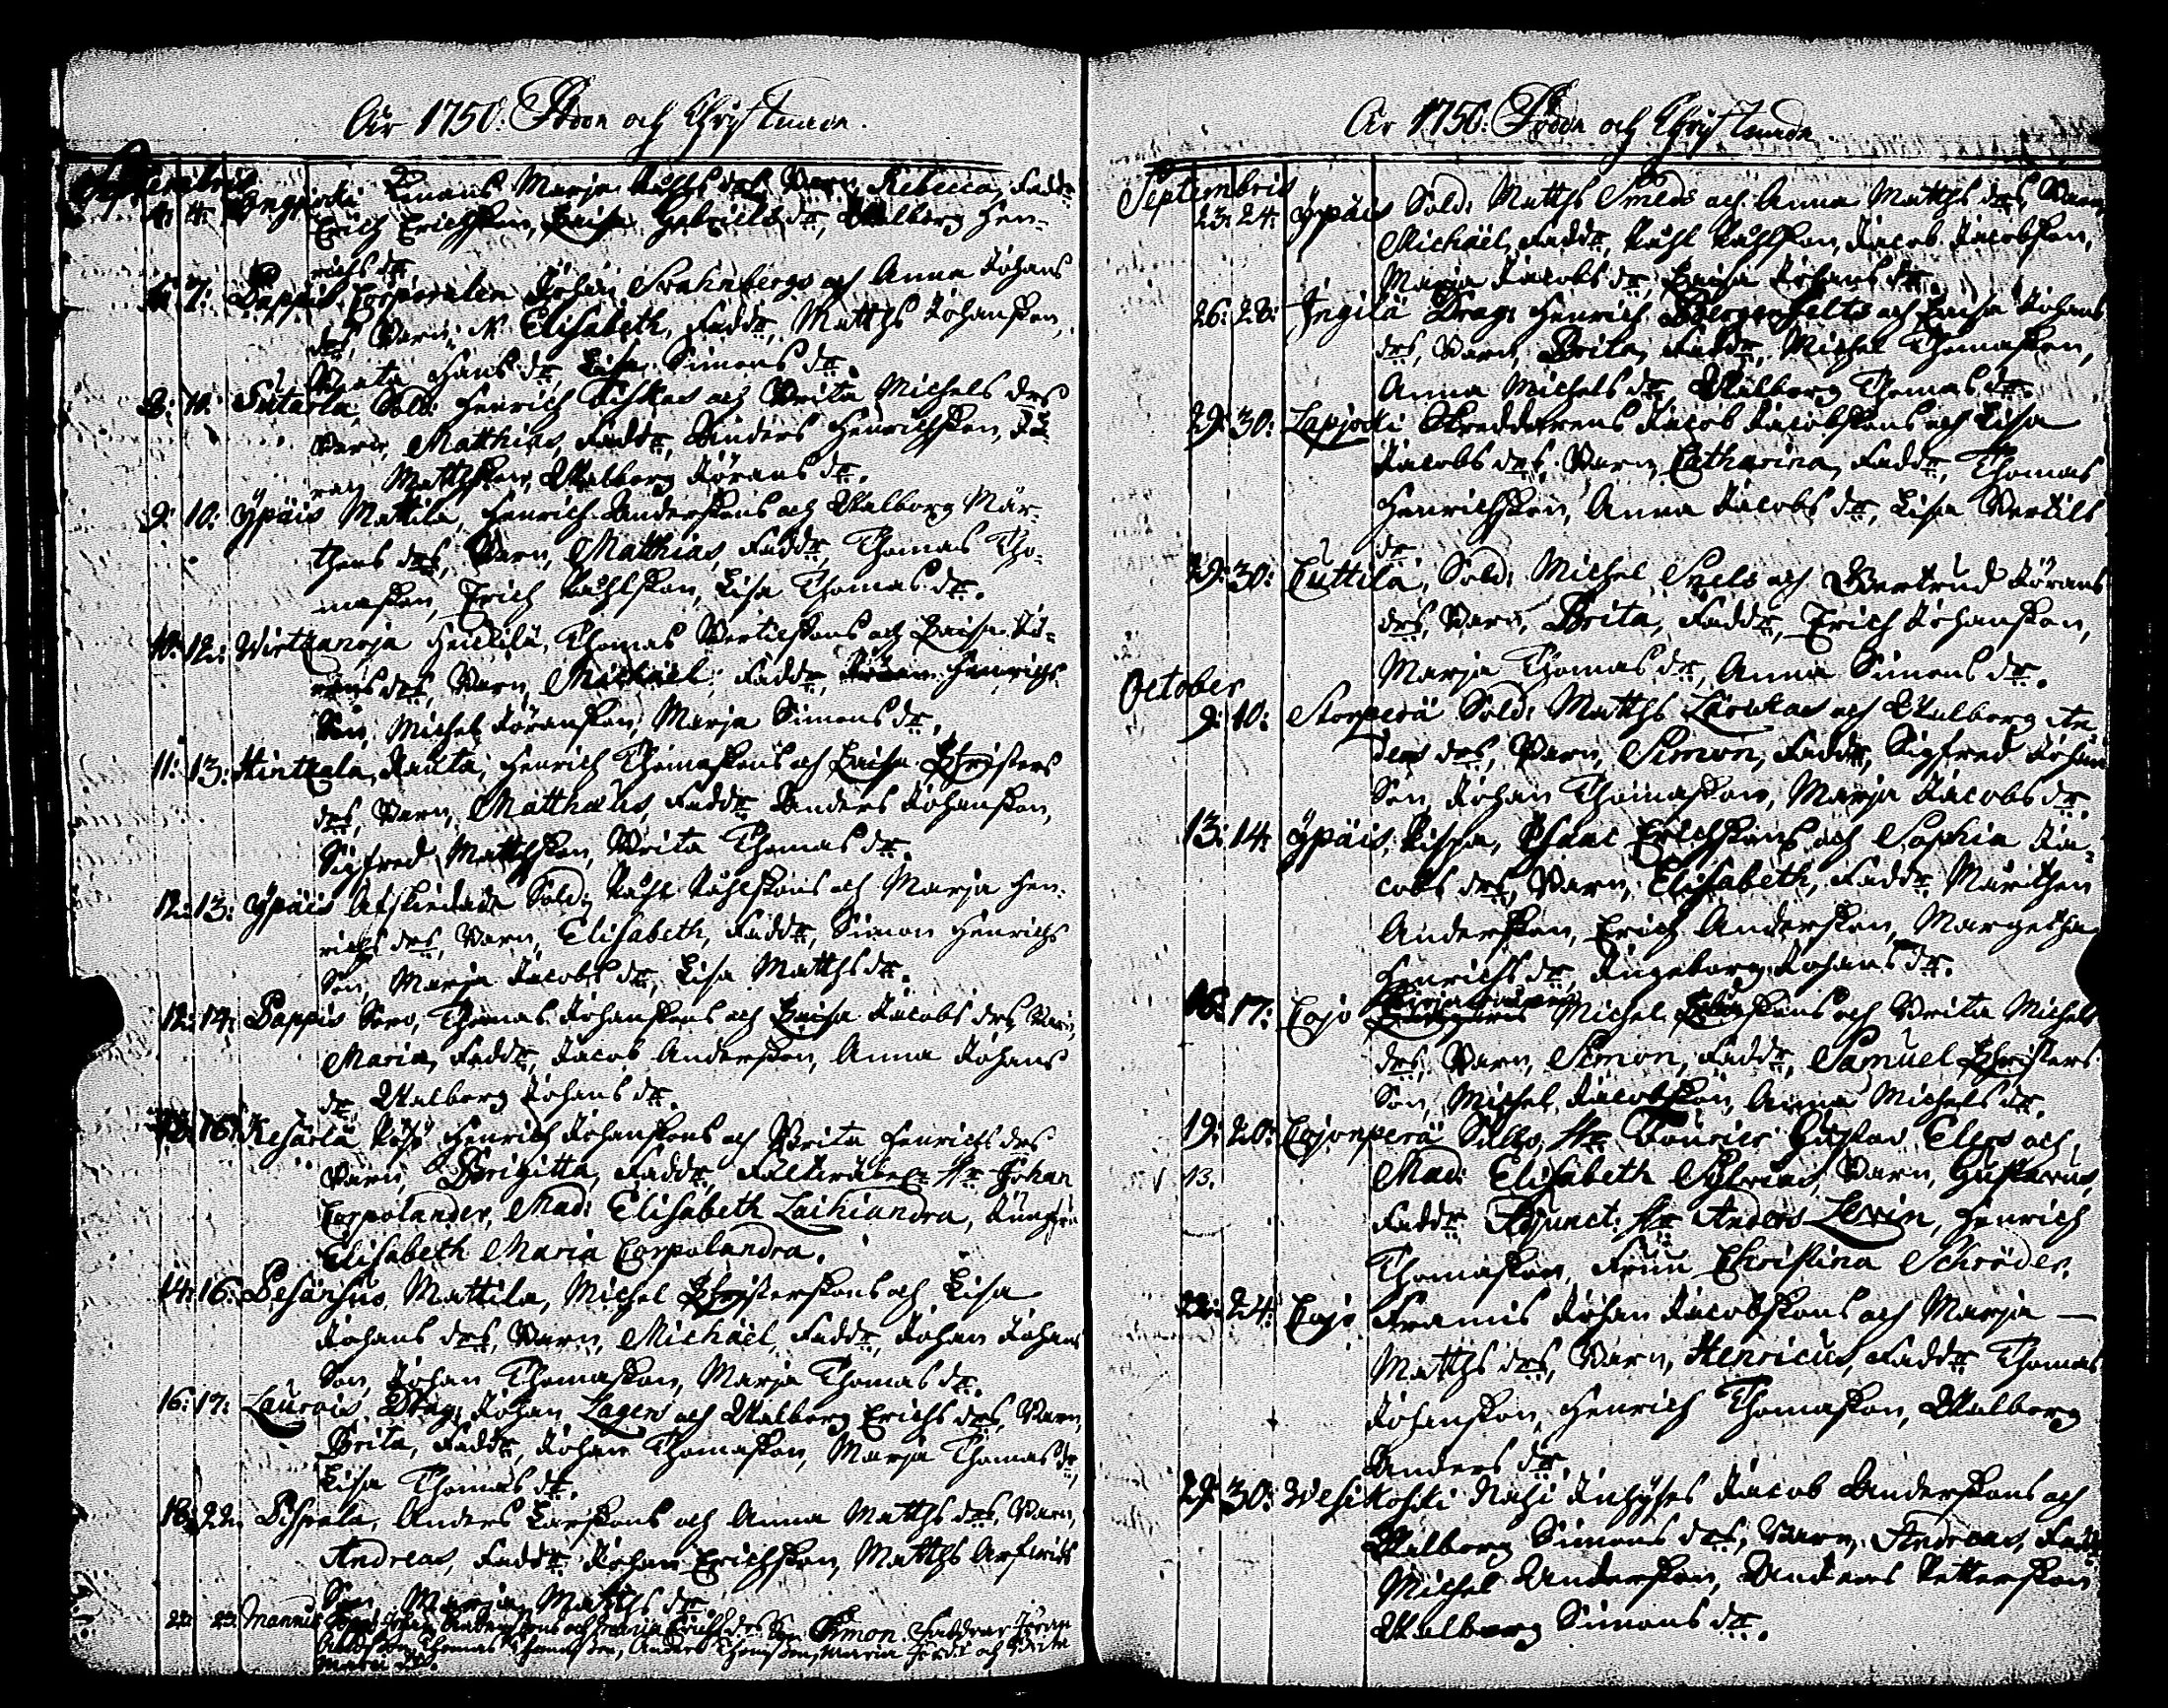 År 1750. Födde och Christnade.
Septembris
4: 4: Lenaus Marja Påhls drs Barn, Rebecca, Faddr
Erich Erichsson, Caisa Gabriels dr, Walborg Hen-
richs dr.
6: 7: Pappis Corporalen Johan Svahnbergs och Anna Johans
drs, Barn, Elisabeth, Faddr, Matths Johansson,
Beata Hans dr, Lisa Simons dr.
8: 10: Sutarla Sold: Henrich och Brita Michels drs
Barn, Matthias, Faddr, Anders Henrichsson, Jö-
ran Mattsson, Walborg Jörans dr.
9: 10: Ypäis Mattila, Henrich Anderssons och Walborg Mår-
thens drs, Barn, Mathias, Faddr, Thomas Tho-
masson, Erich Påhlsson, Lisa Thomas dr.
10: 12: Wirtzanoja Heickilä, Thomas Bertilssons och Caisa Jö-
rans drs, Barn, Michael, Faddr, Henrichs
Son, Michel Göransson, Marja Simons dr.
11: 13: Hintzala, Rauta, Henrich Thomassons och Caisa Christers
drs, Barn, Matthæus, Faddr Anders Johansson,
Sigfred Mattsson, Brita Thomas dr.
12: 13: Ypäis Afskiedade Sold: Påhl Påhlssons och Marja Hen-
richs drs, Barn, Elisabeth, Faddr, Simon Henrichs
Son, Marja Jacobs dr, Lisa Matths dr.
12: 14: Pappis Thomas Johanssons och Caisa Jacobs drs Barn,
Maria, Faddr, Jacob Andersson, Anna Johans
dr, Walborg Johans dr.
16: Kesärlä Henrich Johanssons och Brita Henrichs drs
Barn, Brigitta, Faddr, Hr Johan
Corpolander, Mad: Elisabeth Laihiandra, Jungfru
Elisabeth Maria Corpolandra.
14: 16: Pesänsuo Mattila, Michel Christerssons och Lisa
Johans drs, Barn, Michäel, Faddr, Johan Johans
Son, Johan Thomasson, Marja Thomas dr.
16: 17: Laurois Drag: Johan Lagers och Walborg Erichs drs, Barn,
Brita, Faddr, Johan Thomasson, Marja Thomas dr,
Lisa Thomas dr.
18: 22: Pispala, Anders Larssons och Anna Matths drs, Barn,
Andreas, Faddr Johan Erichsson, Matths Arfwids
Son, Marja Matths dr.
22: 23: Mannis och Maria Erichs drs Simon. Faddrar Jöran
Thomas Thomasson, Anders Thomsson, Maria och Brita
År 1750. Födde och Christnade.
Septembris
23: 24: Ypäis Sold: Matths Smeds och Anna Matths drs Barn
Michäel, Faddr, Påhl Påhlsson, Jacob Jacobsson,
Marja Jacobs dr, Caisa Johans dr.
26: 28: Jngilä Drag: Henrich Bergenfelts och Caisa Johans
drs, Barn, Brita, Faddr, Michel Thomasson,
Anna Michels dr, Walborg Thomas dr.
29: 30: Lapjocki Skreddarens Jacob Jacobssons och Lisa
Jacobs drs, Barn, Catharina, Faddr, Thomas
Henrichsson, Anna Jacobs dr, Lisa Bertils
dr.
29: 30: Cuttila, Sold: Michel Snels och Gertrud Jörans
drs, Barn, Brita, Faddr, Erich Johansson,
Marja Thomas dr, Anna Simons dr.
October
9: 10: Storperä Sold: Matths och Walborg An-
ders drs, Barn, Simon, Faddr, Sigfred Johan
Son, Johan Thomasson, Marja Jacobs dr.
13: 14: Ypäis, Pispa, Isaac Erichssons och Sophia Ja-
cobs drs, Barn, Elisabeth, Faddr Mårthen
Andersson, Erich Andersson, Margetha
Henrichs dr, Ingeborg Johans dr.
16: 17: Cojo Michel och Brita Michels
drs, Barn, Simon, Faddr, Samuel Christers
Son, Michel Jacobsson, Anna Michels dr.
19: 20: Cojonperä Sallo, Hr Fourier Gustav Elers och
13. Mad: Elisabeth Barn, Gustavus,
Faddr Adjunct: Hr Anders Levin, Henrich
Thomasson, Fruu Christina Schröder.
22: 24: Cojo Frannis Johan Jacobssons och Marja —
Matths drs, Barn, Henricus, Faddr Thomas
Johansson, Henrich Thomasson, Walborg
Anders dr.
29: 30: Wesikoski Jacob Anderssons och
Walborg Simons drs, Barn, Andreas, Faddr
Michel Andersson, Anders Pettersson
Walborg Simons dr.